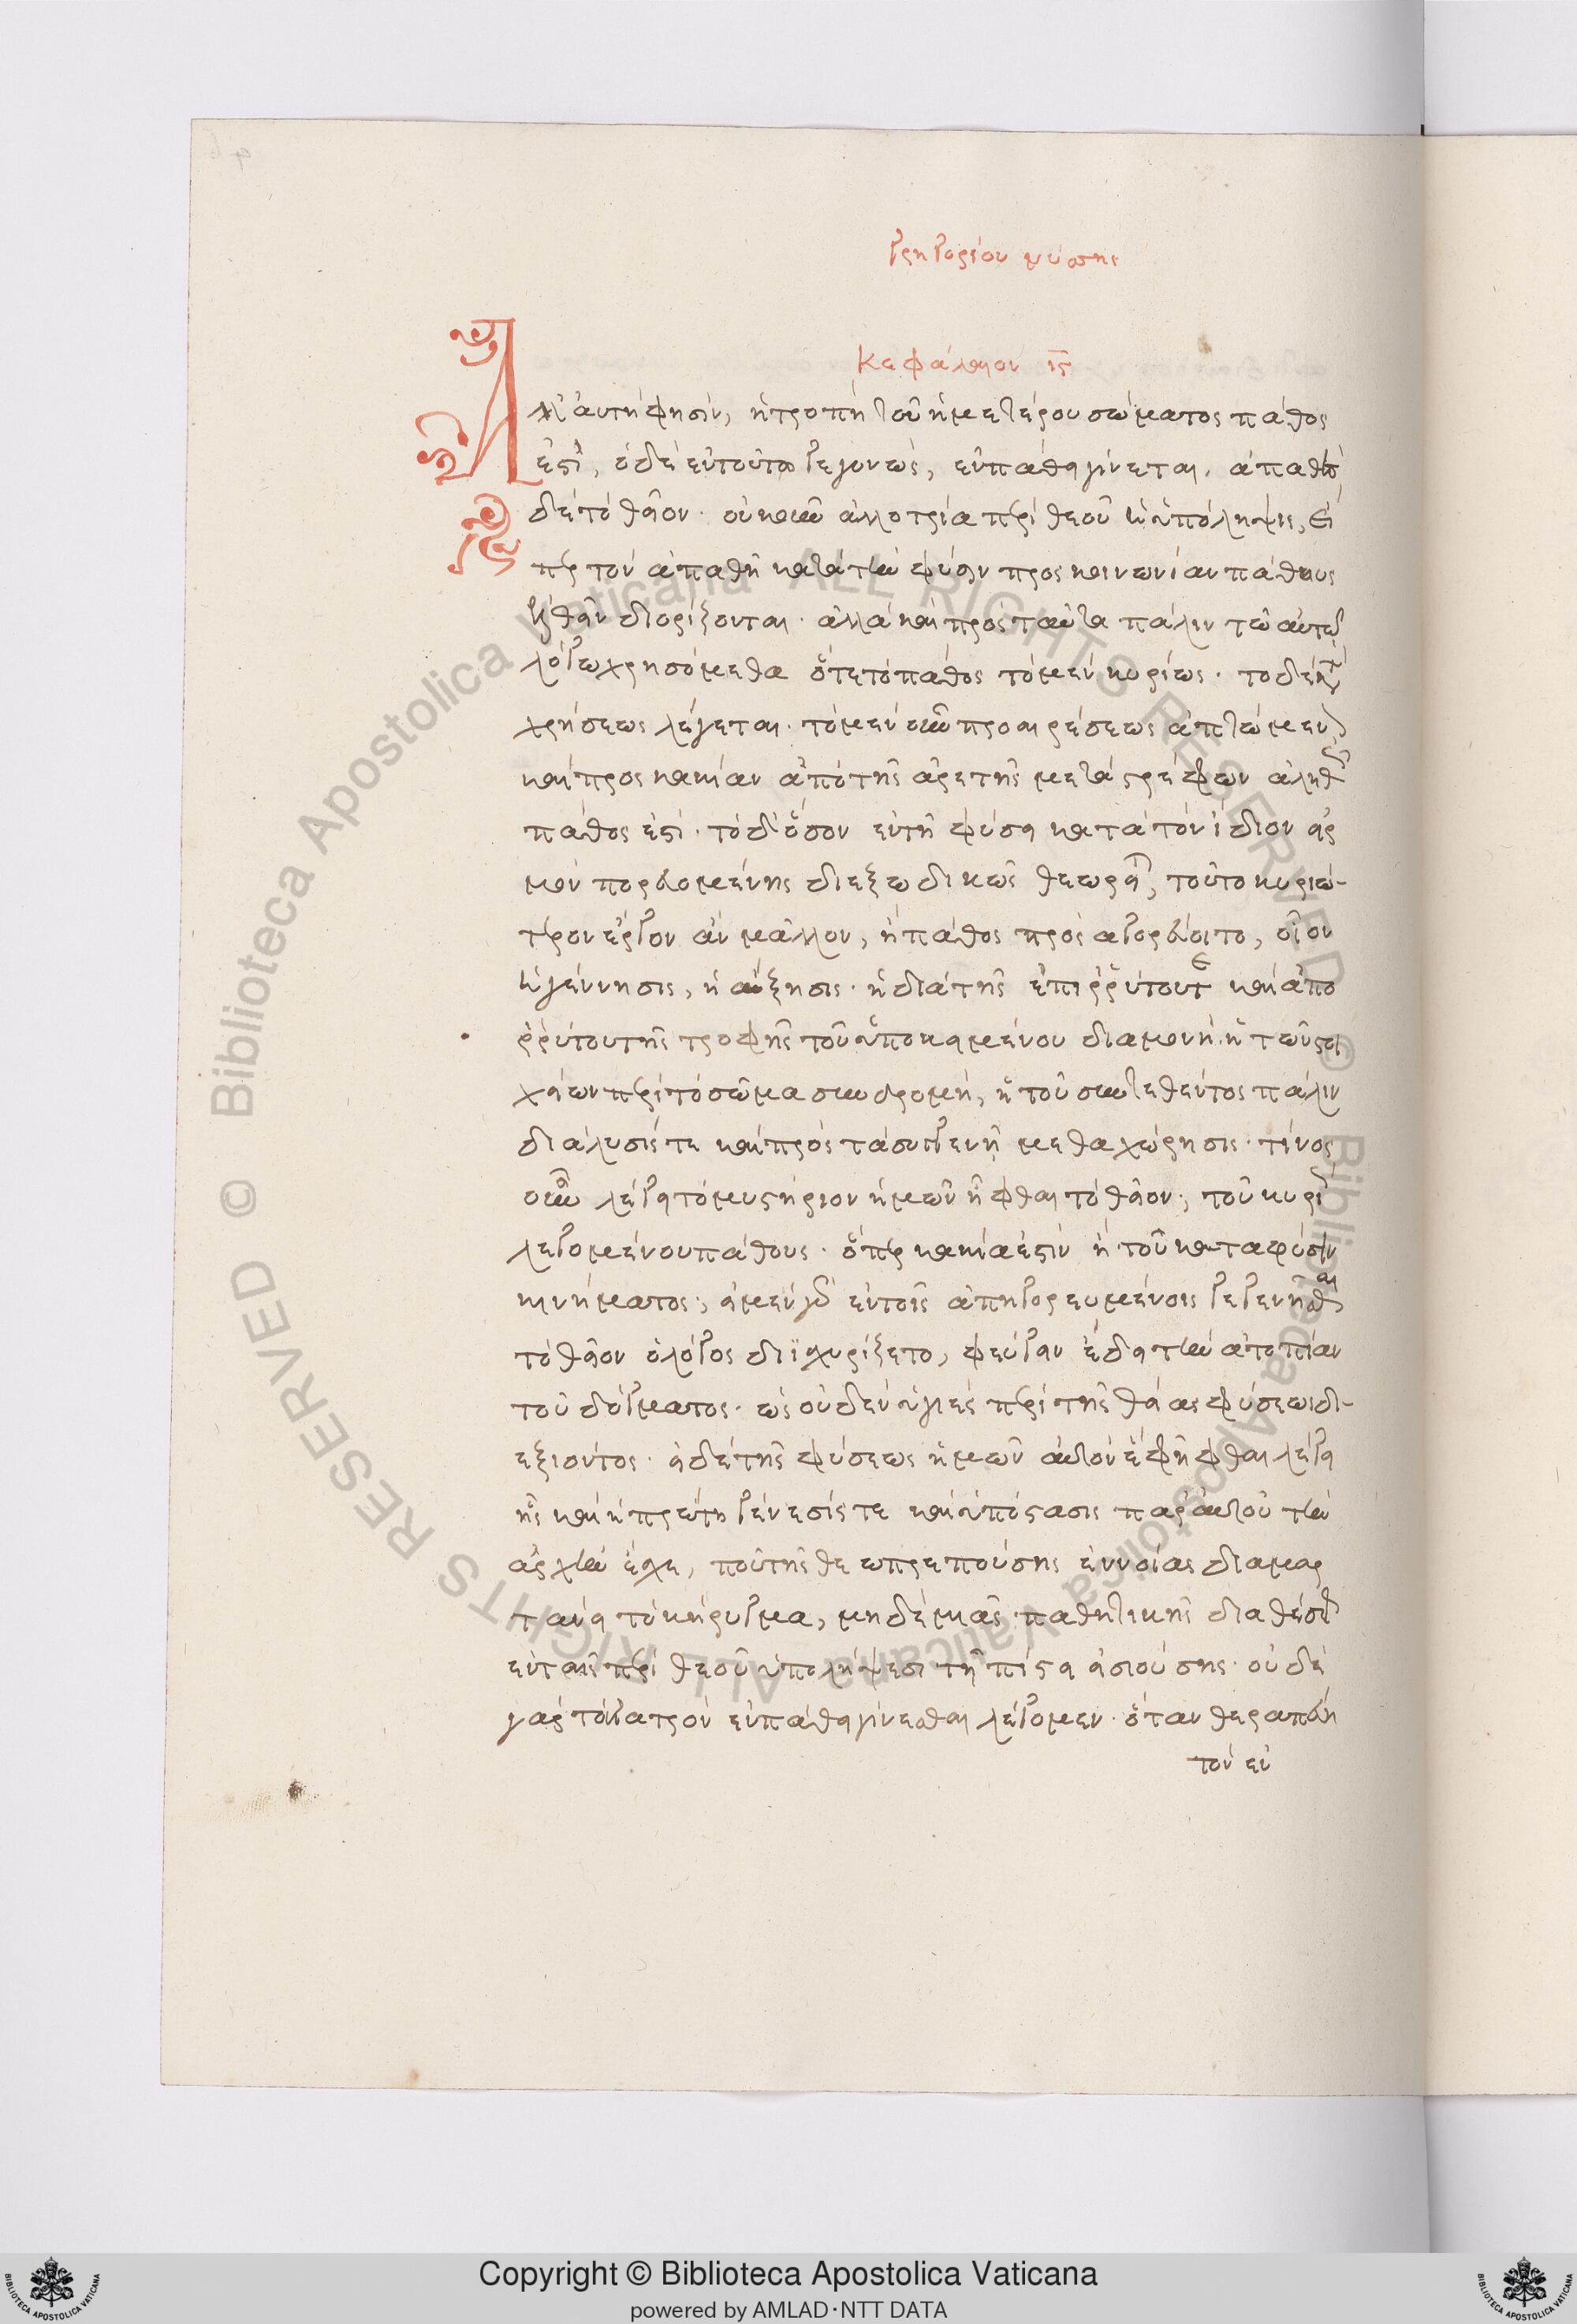 γρηγορίου νύσης
Κεφάλαιον ις
Ἀλλ' αὐτὴ φησὶν, ἡ τροπὴ τοῦ ἡμετέρου σώματος πάθος
ἐστὶ, ὁ δὲ ἐν τούτω γεγονὼς, ἐν πάθει γίνεται. ἀπαθὲς
δὲ τὸ θεῖον. οὐκοῦν ἀλλοτρία περὶ θεοῦ ἡ ὑπόληψις, εἴ
περ τὸν ἀπαθῆ κατὰ τὴν φύσιν προς κοινωνίαν πάθους
ἐλθεῖν διορίζονται. ἀλλὰ καὶ πρὸς ταῦτα πάλιν τῶ αὐτῶ
λόγω χρησόμεθα ὅτι τὸ πάθος τὸ μὲν κυρίως. το δὲ ἐκ
χρήσεως λέγεται. τὸ μὲν οὖν προαιρέσεως ἁπτώμενον
καὶ προς κακίαν ἀπὸ τῆς ἀρετῆς μεταστρέφων ἀληθῶς
πάθος ἐστί. τὸ δ' ὅσον ἐν τῆ φύσει κατὰ τὸν ἴδιον εἱρ
μὸν πορευομένης διεξωδικῶς θεωρεῖται, τοῦτο κυριώ-
τερον ἔργον ἂν μᾶλλον, ἢ πάθος προσαγορεύοιτο, οἷον
ἡ γέννησις, ἡ αὔξησις. ἡ διὰ τῆς ἐπιρρύτου τε καὶ ἀπο
ρρύτου τῆς τροφῆς τοῦ ὑποκειμένου διαμονὴ. ἡ τῶν στοι
χείων περὶ τὸ σῶμα συνδρομὴ, ἡ τοῦ συντεθέντος πάλιν
διάλυσίς τε καὶ πρὸς τὰ συγγενῆ μεθαχώρησις. τίνος
οὖν λέγει τὸ μυστήριον ἡμῶν ἧφθαι τὸ θεῖον; τοῦ κυρίως
λεγομένου πάθους. ὅπερ κακία ἐστὶν ἢ τοῦ κατα φύσιν
κινήματος; εἰ μὲν γὰρ ἐν τοῖς ἀπηγορευμένοις γεγενῆσθαι
τὸ θεῖον ὁ λόγος διϊσχυρίζετο, φεύγειν ἔδει τὴν ἀτοπίαν
τοῦ δόγματος. ὡς οὐδὲν ὑγιὲς περὶ τῆς θείας φύσεως δι-
εξιόντος. εἰ δὲ τῆς φύσεως ἡμῶν αὐτὸν ἐφῆφθαι λέγει
ἧς καὶ ἡ πρώτη γένεσίς τε καὶ ὑπόστασις παρ' αὐτοῦ τὴν
ἀρχὴν ἔσχε, ποῦ τῆς θεωπρεπούσης ἐννοίας διαμαρ
τάνει τὸ κήρυγμα, μηδεμιᾶς παθητικῆς διαθέσεως
ἐν ταῖς περὶ θεοῦ ὑπολήψεσι τῆ πίστει εἰσιούσης. οὐδὲ
γὰρ τὸν ἰατρὸν ἐν πάθει γίνεσθαι λέγομεν. ὅταν θεραπεύη
τὸν ἐν
Copyright © Biblioteca Apostolica Vaticana
powered by AMLAD·NTT DATA
Biblioteca Apostolica Vaticana ALL RIGHTS RESERVED ©